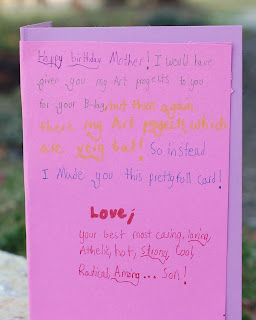 Happy birthday Mother! I would have
given you my Art projects to you
for your B-day, but then again
there my Art projects which
are very bad! So instead
I Made you this prettyfoll Card!
Love,
your best most caring, loving,
Athletic, hot, Strong, Cool,
Radical, Amzing... Son!